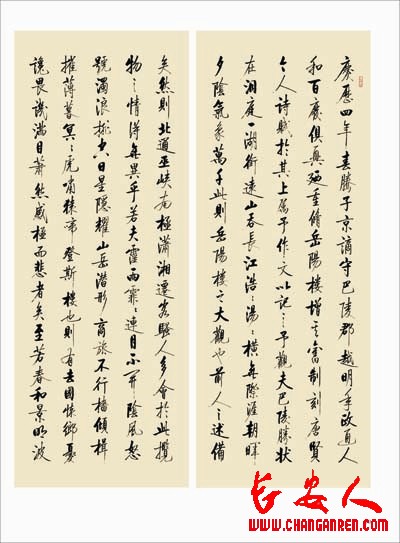 慶歷四年春滕子京謫守巴陵郡越明年政通人
和百廢俱興廼重修岳陽樓增其舊制刻唐賢
今人詩賦於其上屬予作文以記之予觀夫巴陵勝狀
在洞庭一湖銜遠山吞長江浩浩湯湯橫無際涯朝暉
夕陰氣象萬千此則岳陽樓之大觀也前人之述備
矣然則北通巫峽南極瀟湘遷客騷人多會於此攬
物之情得無異乎若夫霪雨霏霏連月不開陰風怒
號濁浪排空日星隱耀山岳潛形商旅不行檣傾楫
摧薄暮冥冥虎嘯猿啼登斯樓也則有去國懷鄉憂
讒畏譏滿目蕭然感極而悲者矣至若春和景明波
长安人
WWW.CHANGANREN.COM